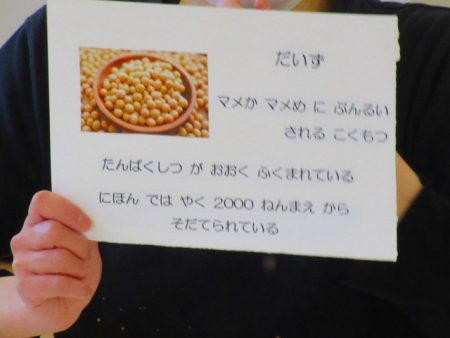 だいず
マメか マメめ に ぶんるい
される こくもつ
たんぱくしつ が おおく ふくまれている
にほん では やく 2000 ねんまえ から
そだてられている